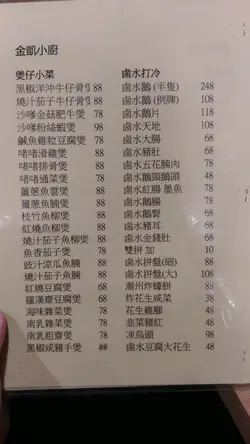 金凱小廚
煲仔小菜
黑椒洋沖牛仔骨煲 88
燒汁茄子牛仔骨煲 88
沙嗲金菇肥牛煲 78
沙嗲粉絲蝦煲 98
鹹魚雞粒豆腐煲 78
啫啫滑雞煲 88
啫啫排骨煲 88
啫啫通菜煲 78
薑蔥魚雲煲 88
薑蔥魚腩煲 88
枝竹魚柳煲 88
紅燒魚柳煲 68
燒汁茄子魚柳煲 88
魚香茄子煲 78
豉汁涼瓜魚腩 88
燒汁茄子魚腩 88
紅燒豆腐煲 68
羅漢齋豆腐煲 68
海味雜菜煲 78
南乳雜菜煲 78
南乳粗齋煲 78
黑椒咸豬手煲 ##
鹵水打冷
鹵水鵝(半隻) 248
鹵水鵝(例牌) 108
鹵水鵝片 118
鹵水天地 108
鹵水大腸 68
鹵水豬肚 68
鹵水五花腩肉 78
鹵水鵝頸鵝頭 48
鹵水紅腸 墨魚 78
鹵水鵝腸 68
鹵水鵝腎 68
鹵水豬耳 68
鹵水金錢肚 68
雙拼 加 10
鹵水拼盤(細) 88
鹵水拼盤(大) 108
潮州炸蠔餅 88
炸花生咸菜 38
花生雞腳 48
韭菜豬紅 48
凍烏頭 98
鹵水豆腐大花生 48